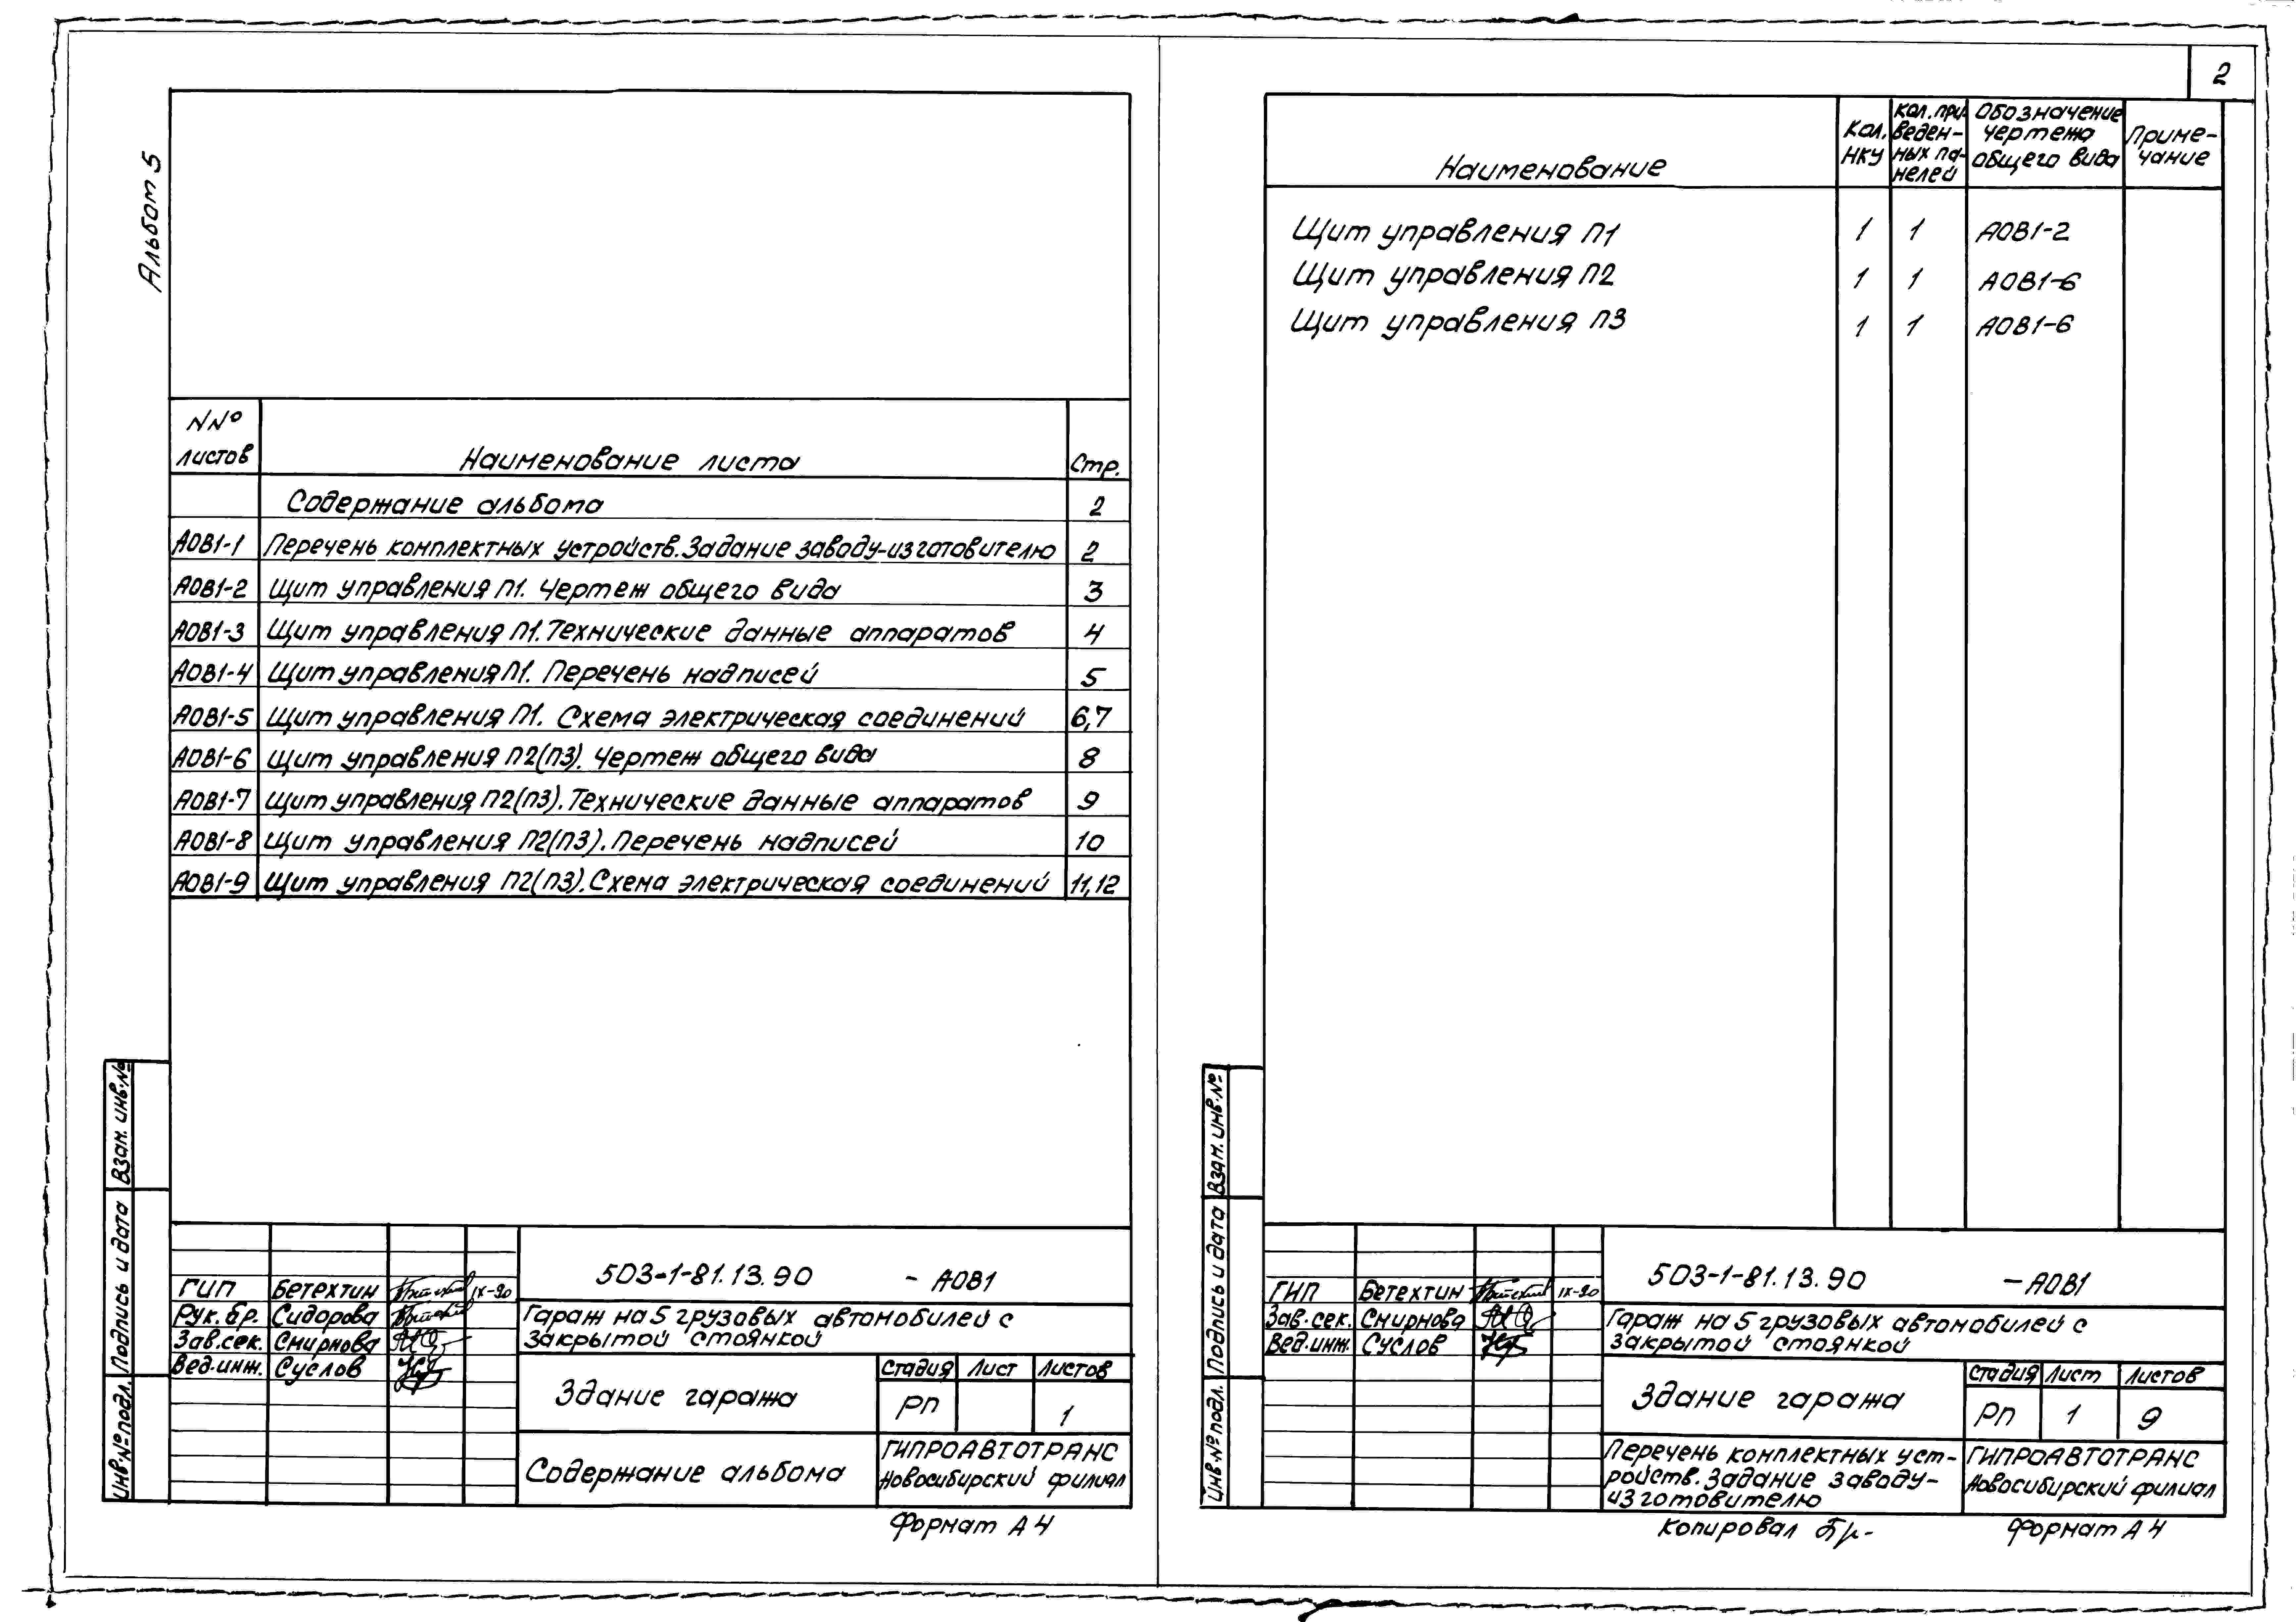 2
Альбом 5
NNº листов Наименование листа Стр.
Содержание альбома 2
АОВ1-1 Перечень комплектных устройств. Задание заводу-изготовителю 2
АОВ1-2 Щит управления П1. Чертеж общего вида 3
АОВ1-3 Щит управления П1. Технические данные аппаратов 4
АОВ1-4 Щит управления П1. Перечень надписей 5
АОВ1-5 Щит управления П1. Схема электрическая соединений 6,7
АОВ1-6 Щит управления П2(П3). Чертеж общего вида 8
АОВ1-7 Щит управления П2(П3). Технические данные аппаратов 9
АОВ1-8 Щит управления П2(П3). Перечень надписей 10
АОВ1-9 Щит управления П2(П3). Схема электрическая соединений 11,12
Взам. инв.№
Подпись и дата
Инв.№ подл.
503-1-81.13.90 - АОВ1
ГИП Бетехтин IX-90
Рук. бр. Сидорова
Зав. сек. Смирнова
Вед. инж. Суслов
Гараж на 5 грузовых автомобилей с
закрытой стоянкой
Здание гаража
Стадия Лист Листов
РП 1
Содержание альбома
ГИПРОАВТОТРАНС
Новосибирский филиал
Формат А4
Наименование
Кол.
НКУ
Кол. при
веден-
ных па-
нелей
Обозначение
чертежа
общего вида
Приме-
чание
Щит управления П1 1 1 АОВ1-2
Щит управления П2 1 1 АОВ1-6
Щит управления П3 1 1 АОВ1-6
Взам. инв.№
Подпись и дата
Инв.№ подл.
503-1-81.13.90 - АОВ1
ГИП Бетехтин IX-90
Зав. сек. Смирнова
Вед. инж. Суслов
Гараж на 5 грузовых автомобилей с
закрытой стоянкой
Здание гаража
Стадия Лист Листов
РП 1 9
Перечень комплектных уст-
ройств. Задание заводу-
изготовителю
ГИПРОАВТОТРАНС
Новосибирский филиал
Копировал
Формат А4